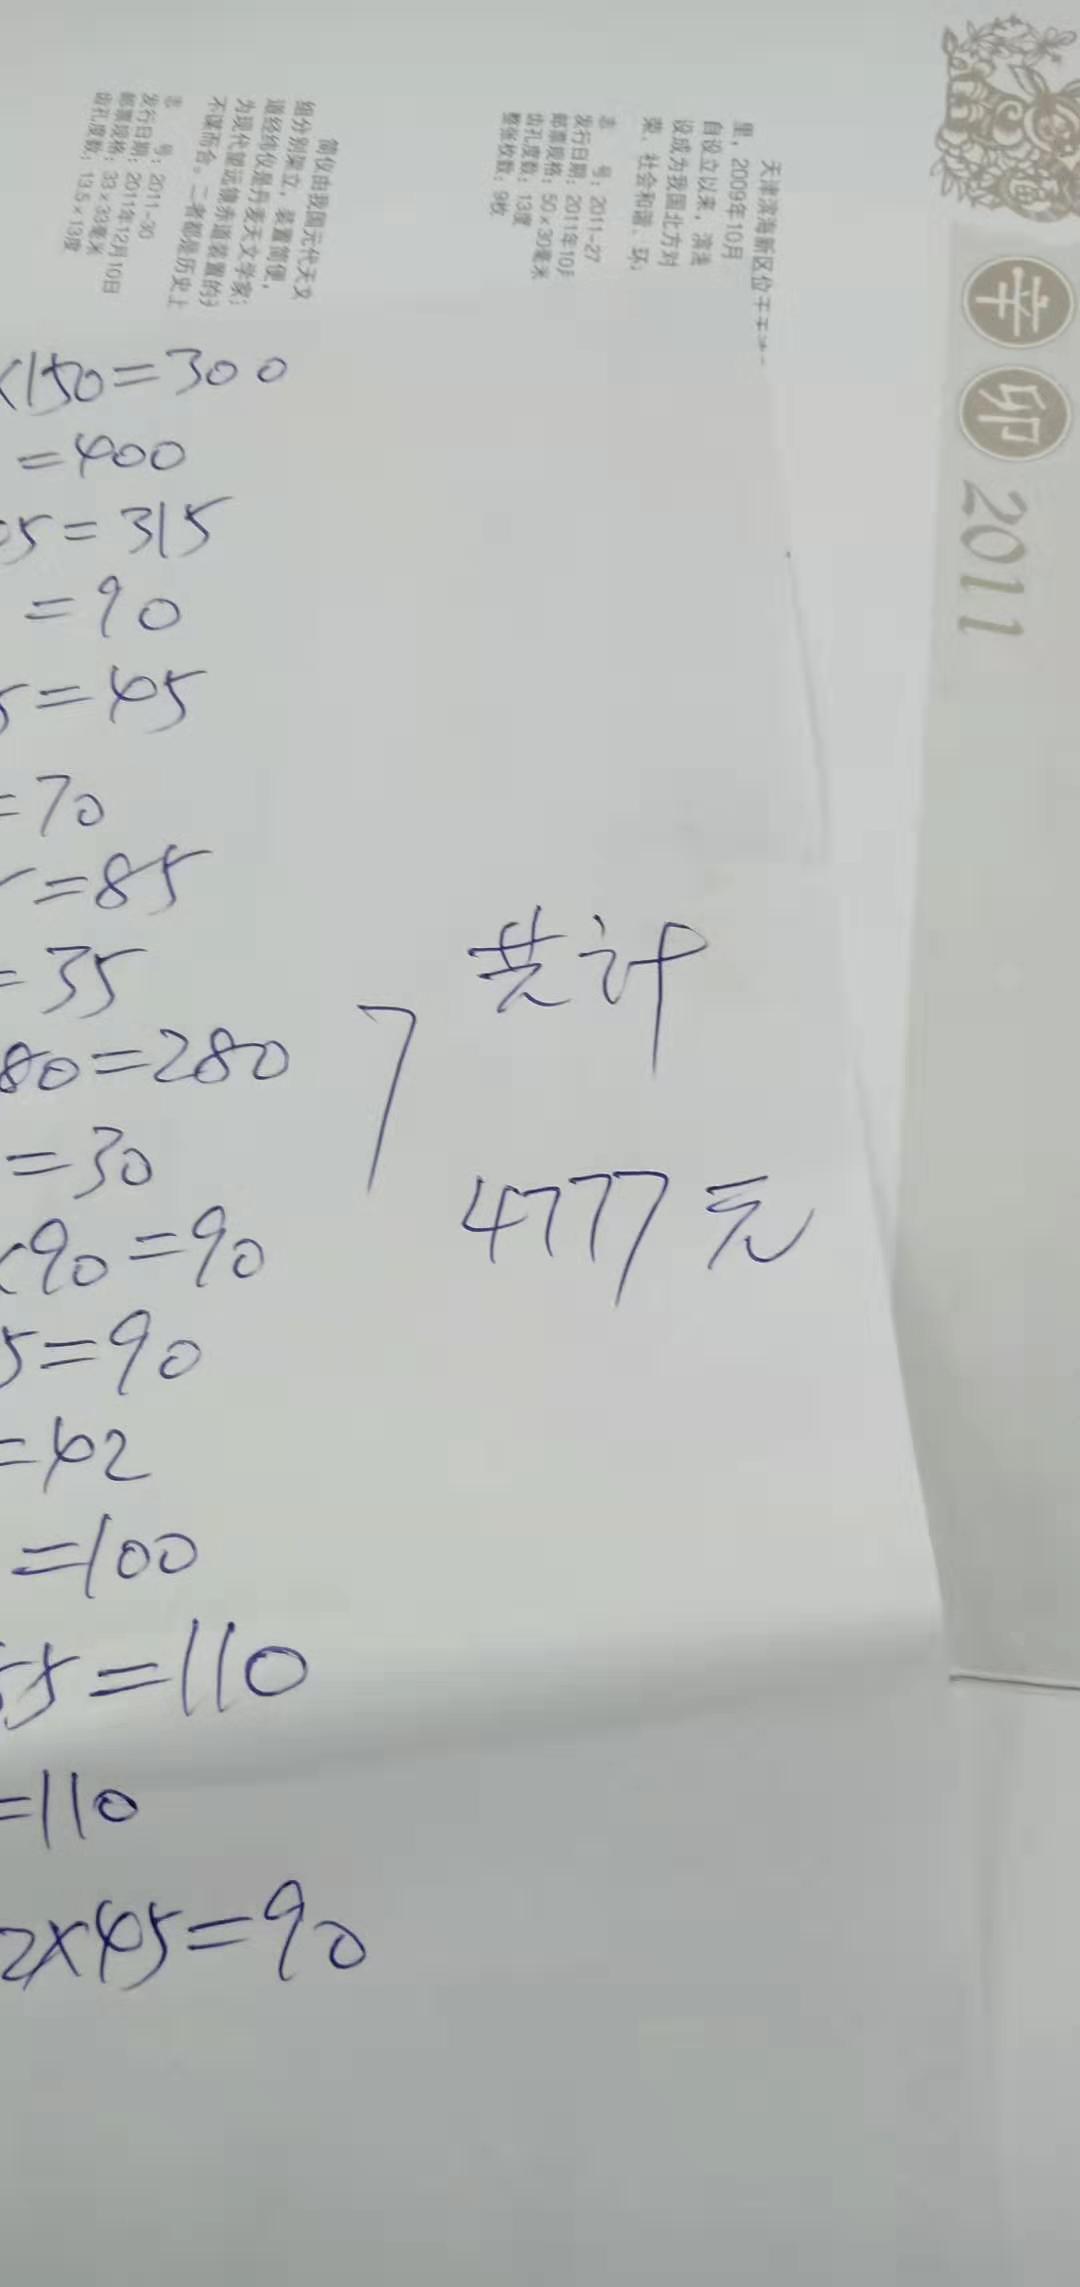 辛卯 2011
天津滨海新区位于
里，2009年10月
自设立以来，滨海
设成为我国北方对
荣、社会和谐、环
志 号：2011-27
发行日期：2011年10月
邮票规格：50×30毫米
齿孔度数：13度
整张枚数：9枚
简仪由我国元代天文
组分别架立，装置简便，
道经纬仪是丹麦天文学家
为现代望远镜赤道装置的
不谋而合。二者都是历史上
志 号：2011-30
发行日期：2011年12月10日
邮票规格：33×33毫米
齿孔度数：13.5×13度
×150=300
=400
5=315
=90
5=45
=70
=85
=35
80=280
=30
×90=90
5=90
=42
=100
55=110
=110
2×45=90
共计
4777元